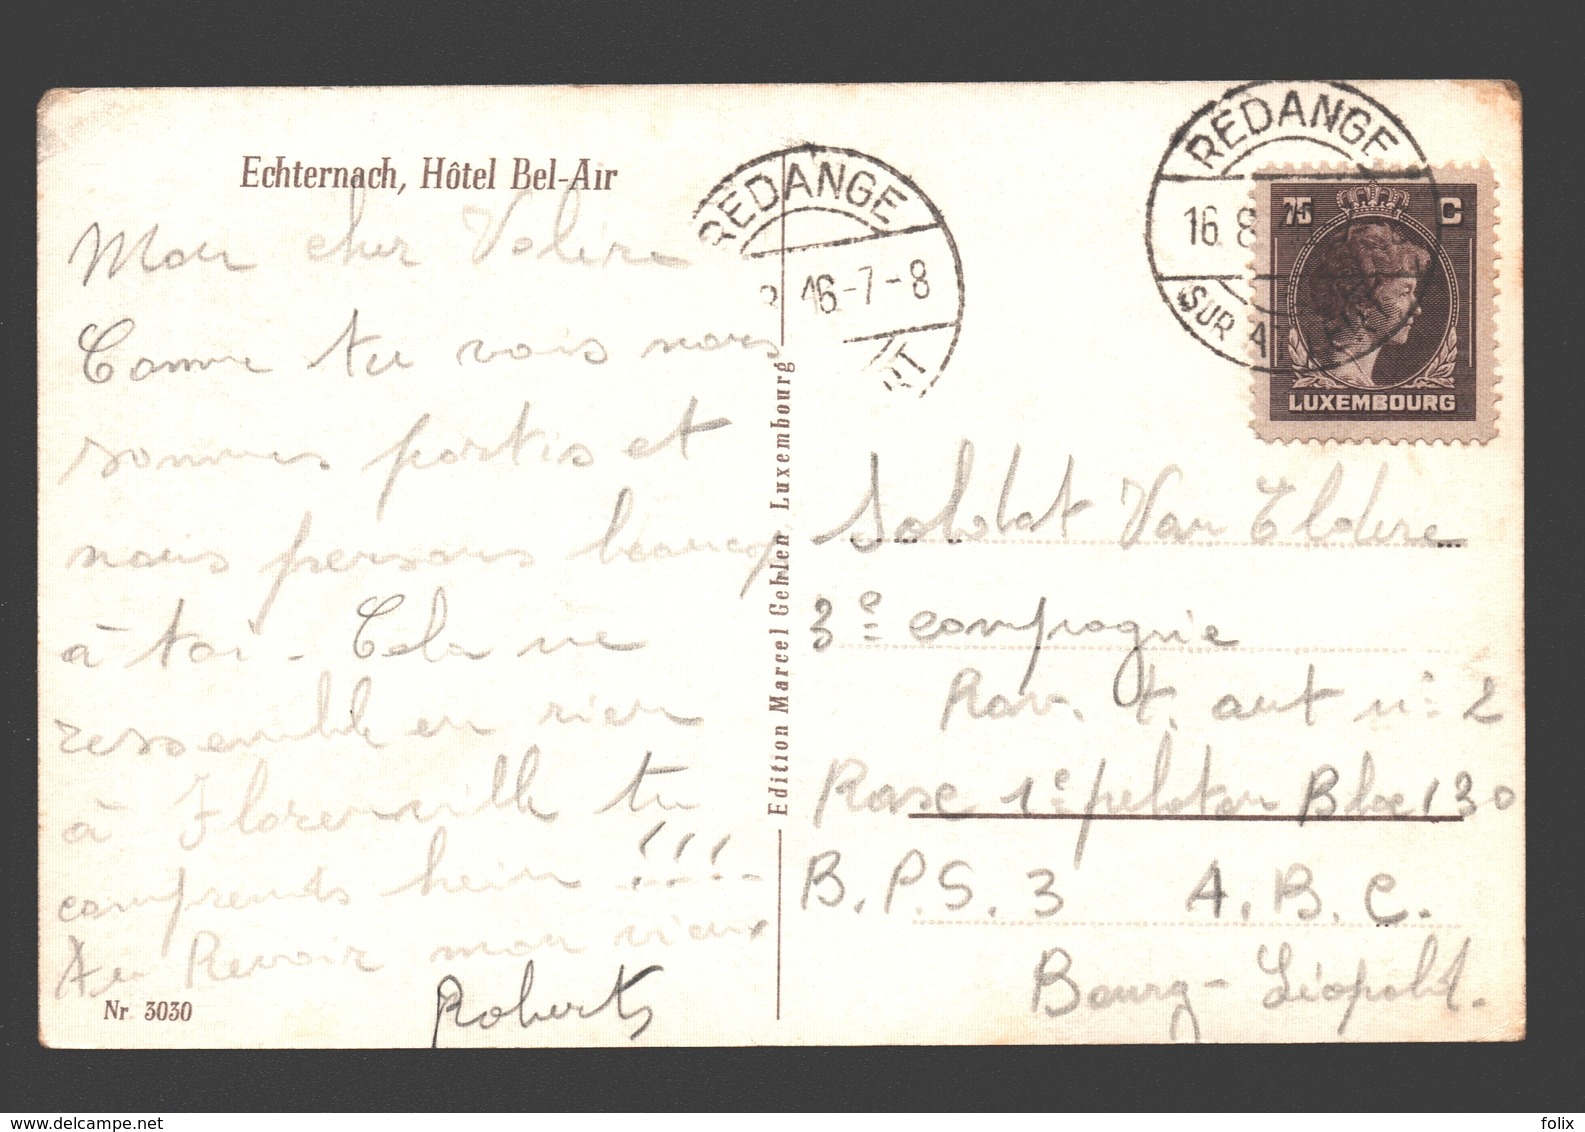 Echternach, Hôtel Bel-Air
Mon cher Valère
Comme tu vois nous
sommes partis et
nous pensons beaucoup
à toi - Cela ne
ressemble en rien
à Florenville tu
comprends hein !!!
Au Revoir mon vieux
Roberts
Nr 3030
Edition Marcel Gehlen, Luxembourg
REDANGE
16-7-8
RT
REDANGE
16. 8
SUR ATTERT
75 C
LUXEMBOURG
Soldat Van Eldere
3e compagnie
Rav. t. aut n: 2
1e peloton Bloc 130
B.P.S. 3 A.B.C.
Bourg-Léopold.
www.delcampe.net
folix